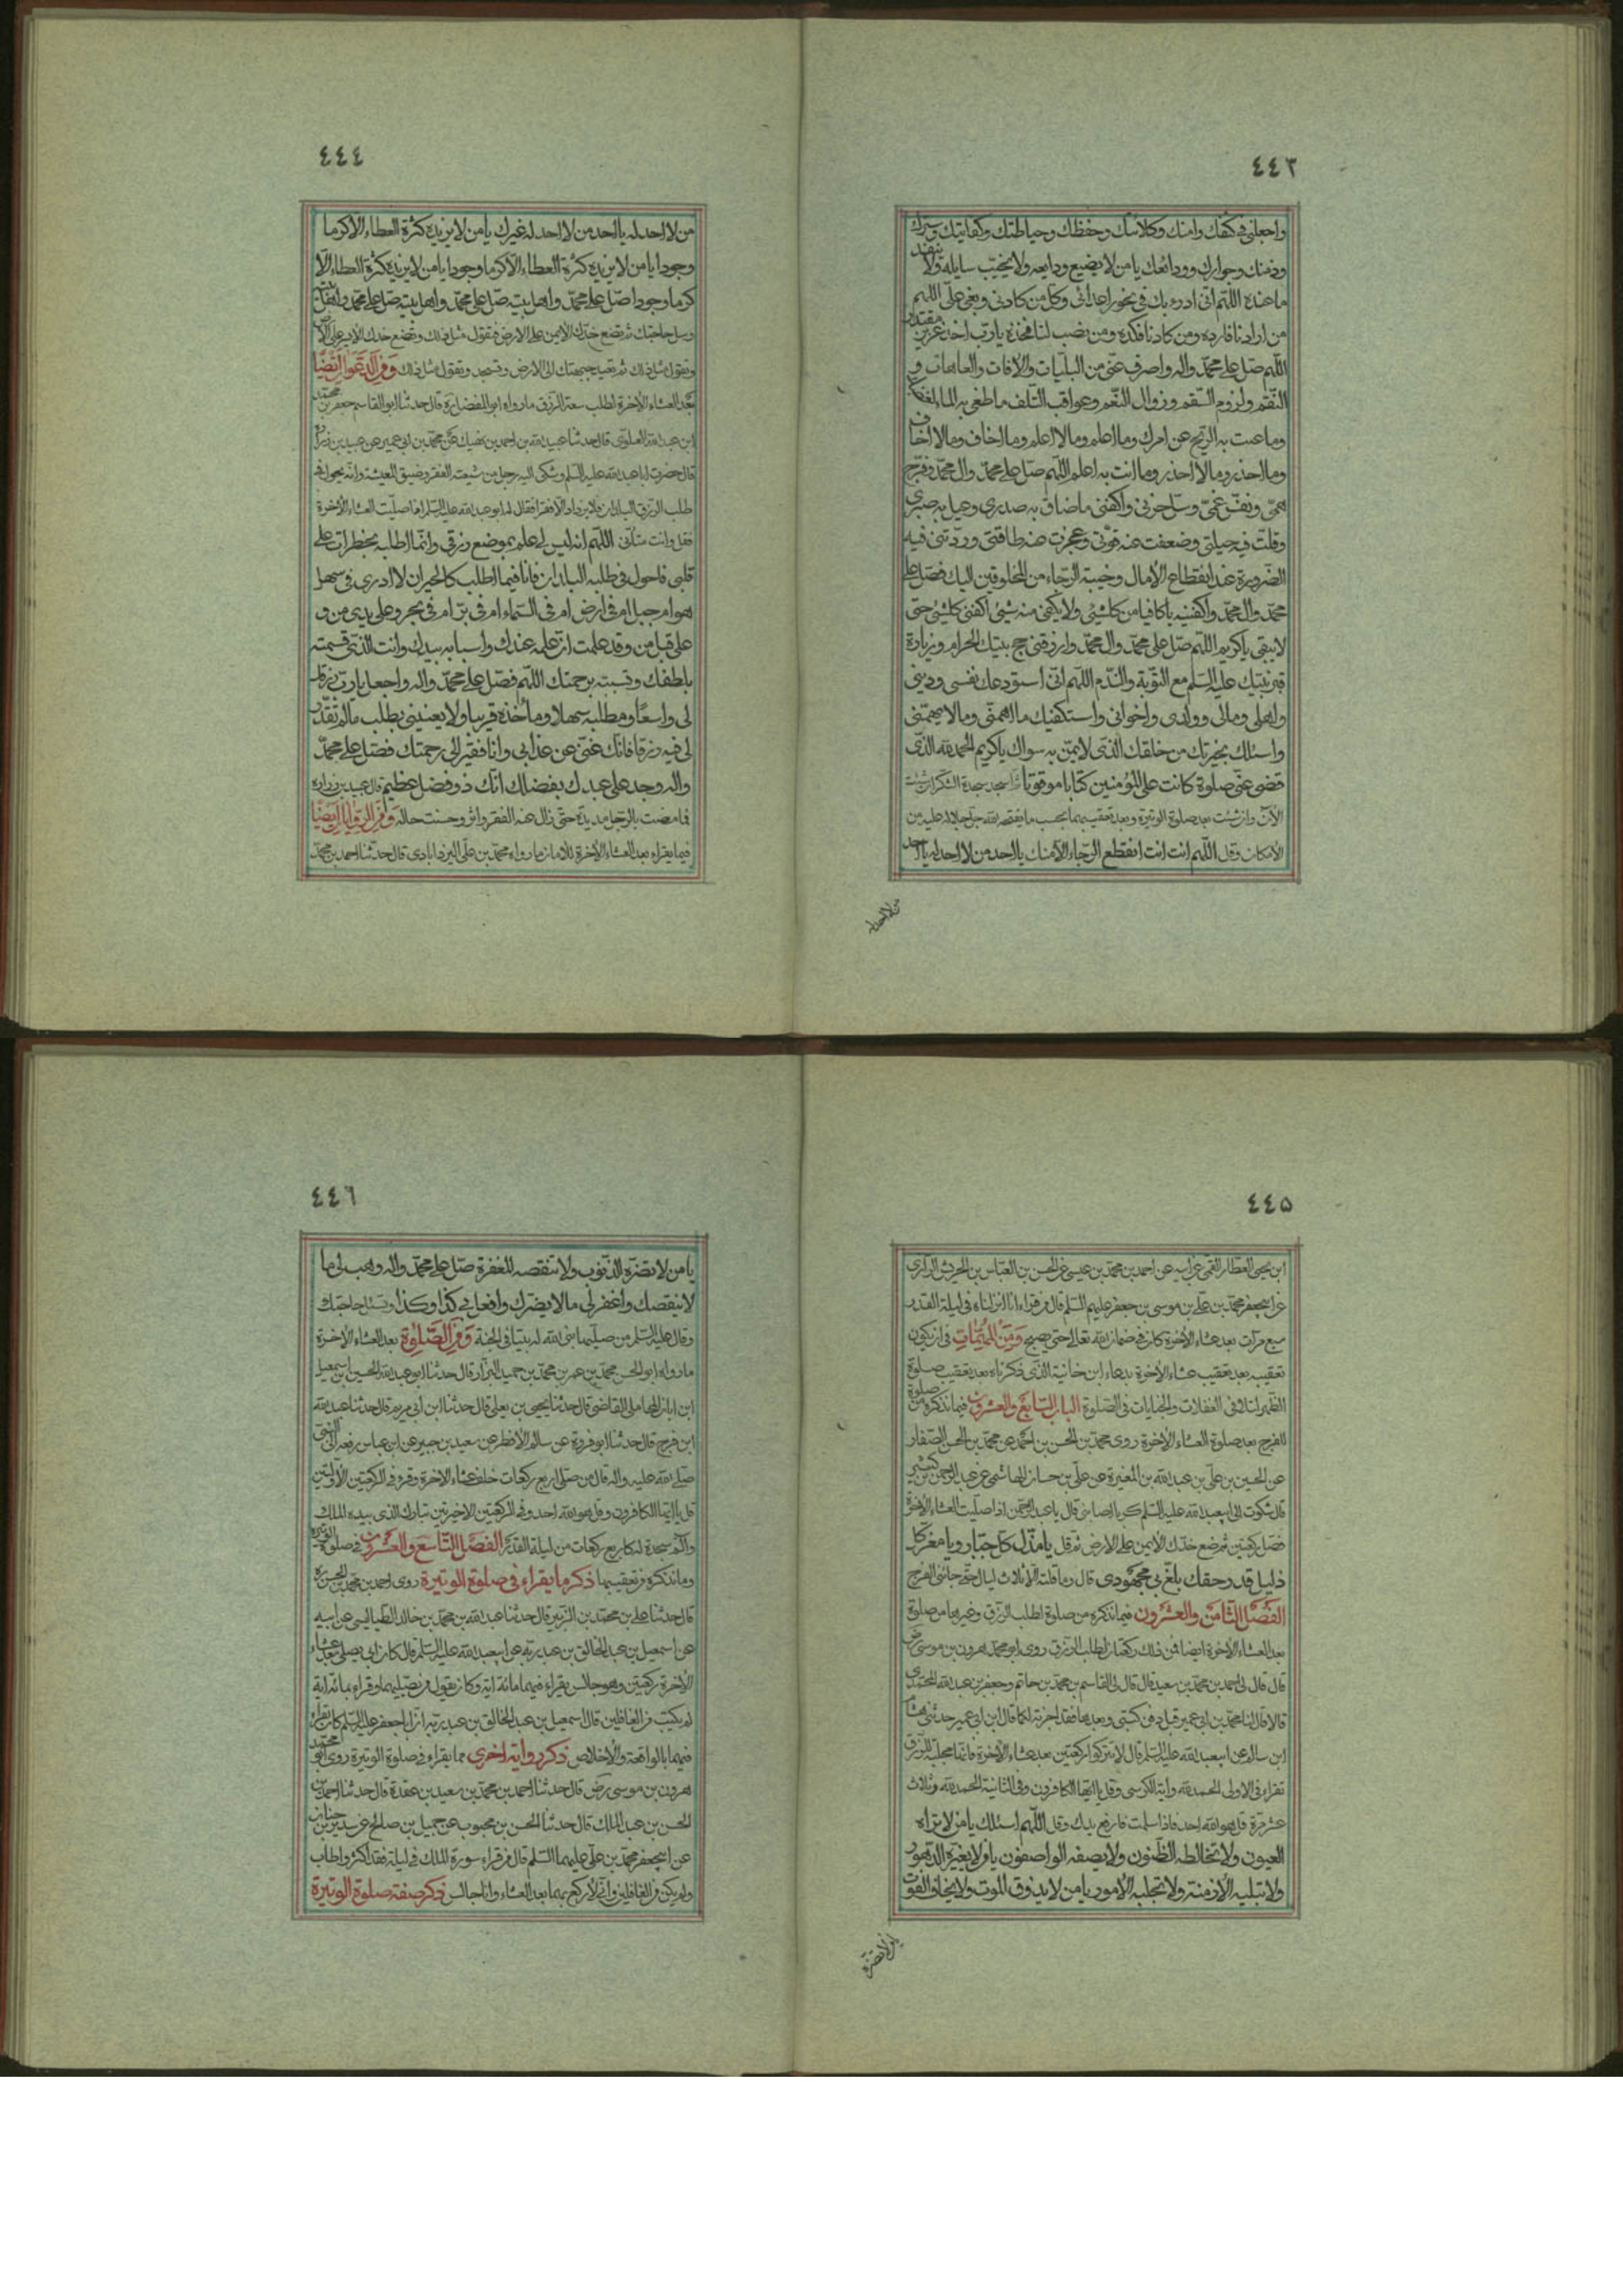 ٤٤٣
واجعلني في كنفك وامنك وكلاءتك وحفظك وحياطتك وكفايتك وسترك
وذمتك وجوارك وودائعك يا من لا يضيع ودايعه ولا يخيب سايله ولا ينفد
ما عنده اللهم اني ادرء بك في نحور اعدائي وكل من كادني وبغى علي اللهم
من ارادنا فارده ومن كادنا فكده ومن نصب لنا فخذه يا رب اخذ عزيز مقتدر
اللهم صل على محمد واله واصرف عني من البليات والافات والعاهات و
النقم ولزوم السقم وزوال النعم وعواقب التلف ما طغى به الماء لغضبك
وما عتت به الريح عن امرك وما اعلم وما لا اعلم وما اخاف وما لا اخاف
وما احذر وما لا احذر وما انت به اعلم اللهم صل على محمد وال محمد وفرج
همي ونفس غمي وسل حزني واكفني ما ضاق به صدري وعيل به صبري
وقلت فيه حيلتي وضعفت عنه قوتي وعجزت عنه طاقتي وردتني فيه
الضرورة عند انقطاع الامال وخيبة الرجاء من المخلوقين اليك فصل على
محمد وال محمد واكفنيه يا كافيا من كل شئ ولا يكفي منه شئ اكفني كل شئ حتى
لا يبقى يا كريم اللهم صل على محمد وال محمد وارزقني حج بيتك الحرام وزيارة
قبر نبيك عليه السلم مع التوبة والندم اللهم اني استودعك نفسي وديني
واهلي ومالي وولدي واخواني واستكفيك ما اهمني وما لا يهمني
واسئلك بخيرتك من خلقك الذي لا يمن به سواك يا كريم الحمد لله الذي
قضى عني صلوة كانت على المؤمنين كتابا موقوتا ثم اسجد سجدة الشكر ان شئت
الان وان شئت بعد صلوة الوتيرة وبعد تعقيبهما بحسب ما يفتحه الله جل جلاله عليه من
الامكان وقل اللهم انت انت انقطع الرجاء الا منك يا احد من لا احد له يا احد
من لا احد له
٤٤٤
من لا احد له يا احد من لا احد له غيرك يا من لا يزيده كثرة العطاء الا كرما
وجودا يا من لا يزيده كثرة العطاء الا كرما وجودا يا من لا يزيده كثرة العطاء الا
كرما وجودا صل على محمد واهل بيته صل على محمد واهل بيته صل على محمد واهل بيته
وسل حاجتك ثم تضع خدك الايمن على الارض فتقول مثل ذلك وتضع خدك الايسر على الارض
وتقول مثل ذلك ثم تعيد جبهتك الى الارض وتسجد وتقول مثل ذلك ومن الدعوات ايضا
بعد العشاء الاخرة لطلب سعة الرزق ما رواه ابو المفضل ره قال حدثنا ابو القاسم جعفر بن محمد
ابن عبد الله العلوي قال حدثنا عبيد الله بن احمد بن نهيك عن محمد بن ابي عمير عن عبيد بن زرارة
قال حضرت ابا عبد الله عليه السلم وشكى اليه رجل من شيعته الفقر وضيق المعيشة وانه يجول في
طلب الرزق البلدان فلا يزداد الا فقرا فقال له ابو عبد الله عليه السلم اذا صليت العشاء الاخرة
فقل وانت متأني اللهم انه ليس لي علم بموضع رزقي وانما اطلبه بخطرات على
قلبي فاجول في طلبه البلدان فانا فيما اطلب كالحيران لا ادري في سهل
هو ام جبل ام في ارض ام في السماء ام في بر ام في بحر وعلى يدي من و
على قبل من وقد علمت ان علمه عندك واسبابه بيدك وانت الذي قسمته
بلطفك وتسببه برحمتك اللهم فصل على محمد واله واجعل يا رب رزقك
لي واسعا ومطلبه سهلا وماخذه قريبا ولا يعنيني بطلب ما لم تقدر
لي فيه رزقا فانك غني عن عذابي وانا فقير الى رحمتك فصل على محمد
واله وجد على عبدك بفضلك انك ذو فضل عظيم قال عبيد بن زراره
فما مضت بالرجل مديدة حتى زال عنه الفقر واثر وحسنت حاله ومن الروايات ايضا
فيما يقراء بعد العشاء الاخرة للامان ما رواه محمد بن علي اليزدابادي قال حدثنا احمد بن محمد
٤٤٥
ابن يحيى العطار القمي عن ابيه عن احمد بن محمد بن عيسى عن الحسن بن العباس بن الحريش الرازي
عن ابيجعفر محمد بن علي بن موسى بن جعفر عليهم السلم قال من قراء انا انزلناه في ليلة القدر
سبع مرات بعد عشاء الاخرة كان في ضمان الله تعالى حتى يصبح ومن المهمات في ان يكون
تعقيبه بعد تعقيب عشاء الاخرة بدعاء ابن خانبة الذي ذكرناه بعد تعقيب صلوة
الظهر لتلافي الغفلات والجنايات في الصلوة الباب السابع والعشرون فيما نذكره من صلوة
للفرج بعد صلوة العشاء الاخرة روى محمد بن الحسن بن احمد عن محمد بن الحسن الصفار
عن الحسين بن علي بن عبد الله بن المغيرة عن علي بن حسان الهاشمي عن عبد الرحمن بن كثير
قال شكوت الى ابيعبد الله عليه السلم كربا اصابني قال يا عبد الرحمن اذا صليت العشاء الاخرة
فصل ركعتين ثم ضع خدك الايمن على الارض ثم قل يا مذل كل جبار ويا معز كل
ذليل قد وحقك بلغ بي مجهودي قال وما قلته الا ثلاث ليال حتى جائني الفرج
الفصل الثامن والعشرون فيما نذكره من صلوة لطلب الرزق وغيرها من صلوة
بعد العشاء الاخرة ايضا فمن ذلك ركعتان لطلب الرزق روى ابو محمد هرون بن موسى رض
قال قال لي احمد بن محمد بن سعيد قال قال لي القاسم بن محمد بن حاتم وجعفر بن عبد الله المحمدي
قالا قال لنا محمد بن ابي عمير قبل دفن كتبي وبعدها فقد اجزته لكما قال ابن ابي عمير حدثني هشام
ابن سالم عن ابيعبد الله عليه السلم قال لا تتركوا ركعتين بعد عشاء الاخرة فانها مجلبة للرزق
تقراء في الاولى الحمد لله واية الكرسي وقل يا ايها الكافرون وفي الثانية الحمد لله وثلاث
عشر مرة قل هو الله احد فاذا سلمت فارفع يديك وقل اللهم اسئلك يا من لا تراه
العيون ولا تخالطه الظنون ولا يصفه الواصفون يا من لا يغيره الدهور
ولا تبليه الازمنة ولا تحيله الامور يا من لا يذوق الموت ولا يخاف الفوت
يا من لا تضره
٤٤٦
يا من لا تضره الذنوب ولا تنقصه المغفرة صل على محمد واله وهب لي ما
لا ينقصك واغفر لي ما لا يضرك وافعل بي كذا وكذا وتسئل حاجتك
وقال عليه السلم من صليها بنى الله له بيتا في الجنة ومن الصلوة بعد العشاء الاخرة
ما رواه ابو الحسن محمد بن عمر بن محمد بن حميد البزاز قال حدثنا ابو عبد الله الحسين بن اسمعيل
ابن ابان المحاملي القاضي قال حدثنا يحيى بن يعلى قال حدثنا ابن ابي مريم قال حدثنا عبد الله
ابن فرج قال حدثنا ابو فروة عن سالم الافطس عن سعيد بن جبير عن ابن عباس رفعه الى النبي
صلى الله عليه واله قال من صلى اربع ركعات خلف عشاء الاخرة وقرء في الركعتين الاولتين
قل يا ايها الكافرون وقل هو الله احد وفي الركعتين الاخيرتين تبارك الذي بيده الملك
والم سجدة له كاربع ركعات من ليلة القدر الفصل التاسع والعشرون في صلوة الوتيرة
وما نذكره من تعقيبها ذكر ما يقراء في صلوة الوتيرة روى احمد بن محمد بن الحسن ره
قال حدثنا علي بن محمد بن الزبير قال حدثنا عبد الله بن محمد بن خالد الطيالسي عن ابيه
عن اسمعيل بن عبد الخالق بن عبد ربه عن ابيعبد الله عليه السلم قال كان ابي يصلي بعد عشاء
الاخرة ركعتين وهو جالس يقراء فيهما مائة اية وكان يقول من صليهما وقراء بمائة اية
لم يكتب من الغافلين قال اسمعيل بن عبد الخالق بن عبد ربه ان ابا جعفر عليه السلم كان يقراء
فيهما بالواقعة والاخلاص ذكر رواية اخرى مما يقراء في صلوة الوتيرة روى ابو محمد
هرون بن موسى رض قال حدثنا احمد بن محمد بن سعيد بن عقدة قال حدثنا احمد بن
الحسن بن عبد الملك قال حدثنا الحسن بن محبوب عن جميل بن صالح عن سدير بن حنان
عن ابيجعفر محمد بن علي عليهما السلم قال من قراء سورة الملك في ليلة فقد اكثر واطاب
ولم يكن من الغافلين واني لاركع بهما بعد العشاء وانا جالس ذكر صفة صلوة الوتيرة